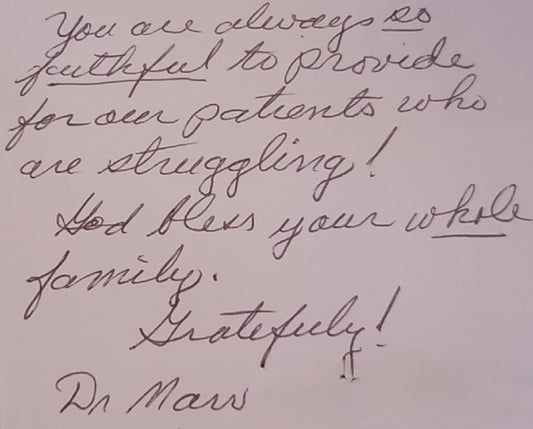 You are always so
faithful to provide
for our patients who
are struggling!
God bless your whole
family.
Gratefully!
Dr